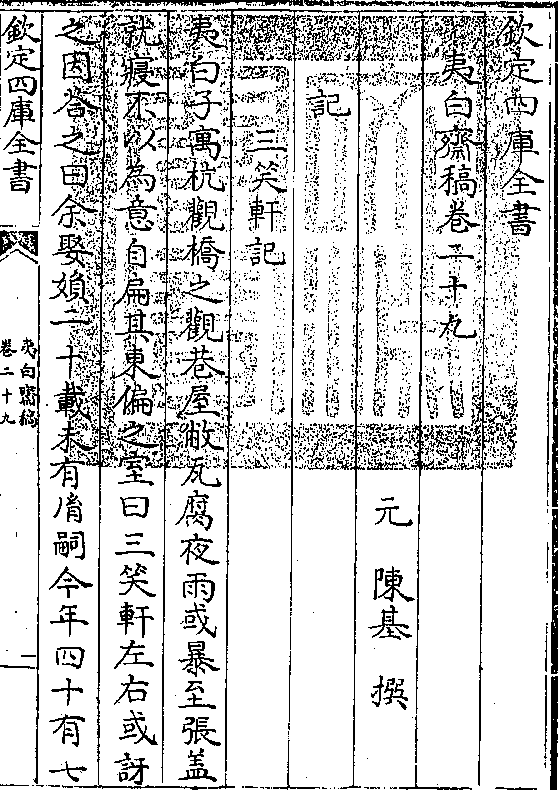 欽定四庫全書
夷白齋稿卷二十九
元 陳基 撰
記
三笑軒記
夷白子寓杭觀橋之觀巷屋敝瓦腐夜雨或暴至張盖
就寢不以為意自扁其東偏之室曰三笑軒左右或訝
之因答之曰余娶媍二十載未有胤嗣今年四十有七
欽定四庫全書
夷白齋稿
卷二十九
一